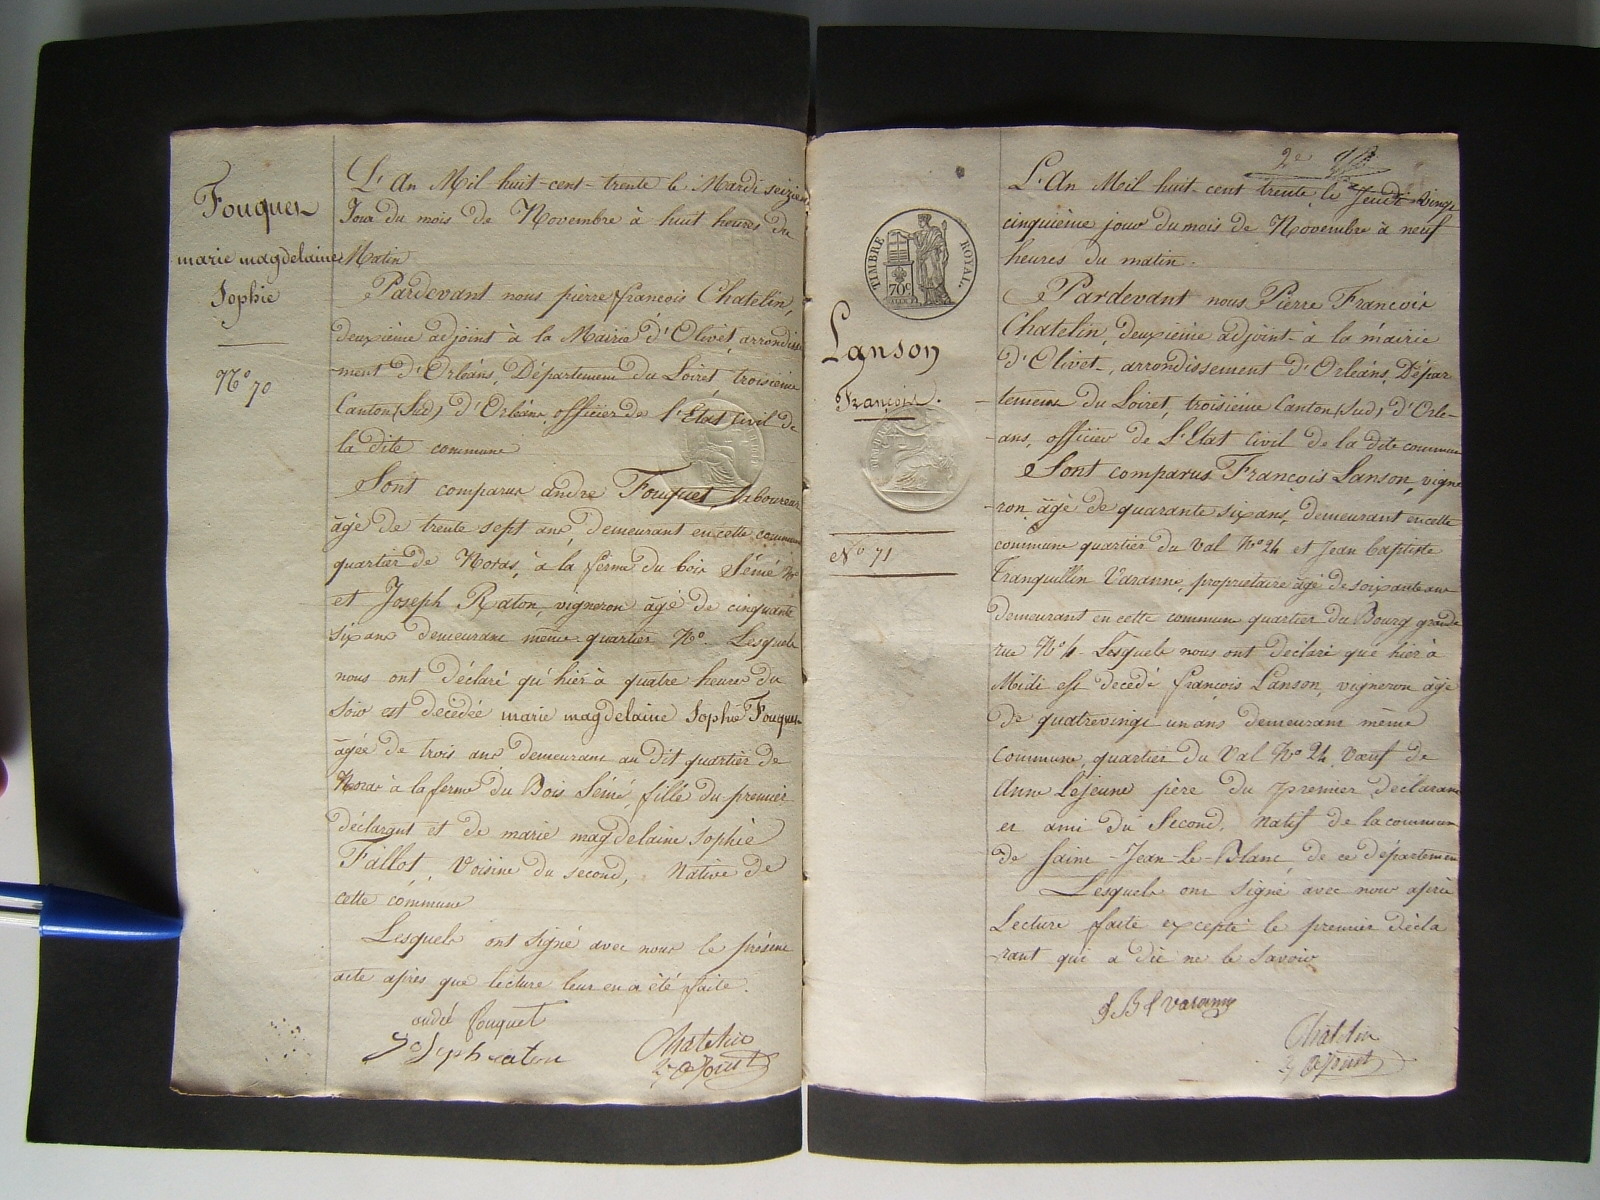 Fouquet
marie magdelaine
Sophie
N.o 70
L'An Mil huit-cent-trente le Mardi seizième
Jour du mois de Novembre à huit heures du
Matin
Pardevant nous pierre françois Chatelin,
deuxième adjoint à la Mairie d'Olivet, arrondisse
-ment d'Orléans, Département du Loiret, troisième
Canton (Sud) d'Orléans, officier de l'Etat Civil de
la dite commune
Sont comparus andré Fouquet, laboureur
âgé de trente sept ans, demeurant en cette commune
quartier de Noras, à la ferme du bois Sémé N.o
et Joseph Raton, vigneron âgé de cinquante
six ans demeurant même quartier N.o Lesquels
nous ont déclaré qu'hier à quatre heures du
soir est décédée marie magdelaine Sophie Fouquet
âgée de trois ans demeurant au dit quartier de
Noras à la ferme du Bois Sémé, fille du premier
déclarant et de marie magdelaine Sophie
Faillot, Voisine du second, Native de
cette commune
Lesquels ont signé avec nous le présent
acte après que lecture leur en a été faite.
andré fouquet
Joseph raton
Chatelin
adjoint
TIMBRE ROYAL
70c
Lanson
François.
No 71
2e
L'An Mil huit-cent trente, le Jeudi vingt
cinquième jour du mois de Novembre à neuf
heures du matin.
Pardevant nous Pierre François
Chatelin, deuxième adjoint à la mairie
d'Olivet, arrondissement d'Orléans, Dépar
-tement du Loiret, troisième Canton (Sud) d'Orlé-
-ans, officier de L'Etat Civil de la dite commune
Sont comparus François Lanson, vigne
-ron âgé de quarante six ans, demeurant en cette
commune quartier du Val N.o 24 et Jean baptiste
Tranquillin Varanne, proprietaire âgé de soixante ans
demeurant en cette commune quartier du Bourg grande
rue N.o 4. Lesquels nous ont déclaré que hier à
Midi est décédé françois Lanson, vigneron âgé
de quatrevingt un ans demeurant même
commune, quartier du Val N.o 24, Vœuf de
Anne Lejeune père du premier déclarant
et ami du Second, natif de la commune
de Saint-Jean-Le-Blanc, de ce département
Lesquels ont signé avec nous après
Lecture faite excepté le premier décla
-rant qui a dit ne le savoir
J B t varanne
Chatelin
adjoint